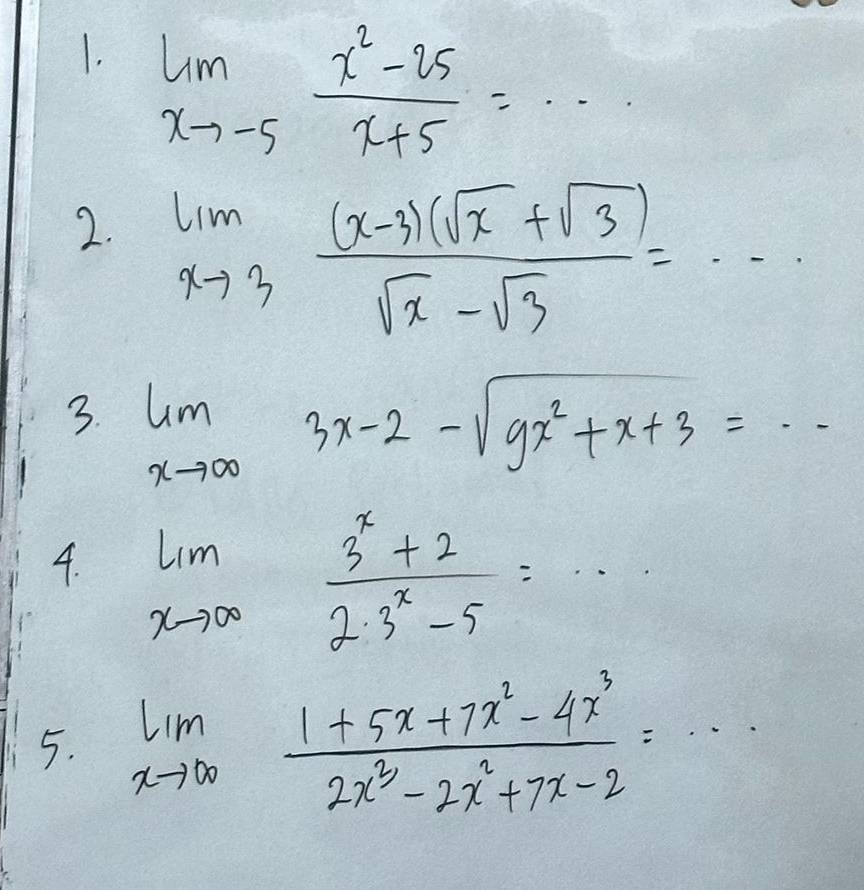 1. lim x→-5 (x² - 25)/(x+5) = ....
2. lim x→3 ((x-3)(√x + √3))/(√x - √3) = ....
3. lim x→∞ 3x-2 - √(9x² + x + 3) = ...
4. lim x→∞ (3^x + 2)/(2·3^x - 5) = ....
5. lim x→∞ (1 + 5x + 7x² - 4x³)/(2x³ - 2x² + 7x - 2) = ....